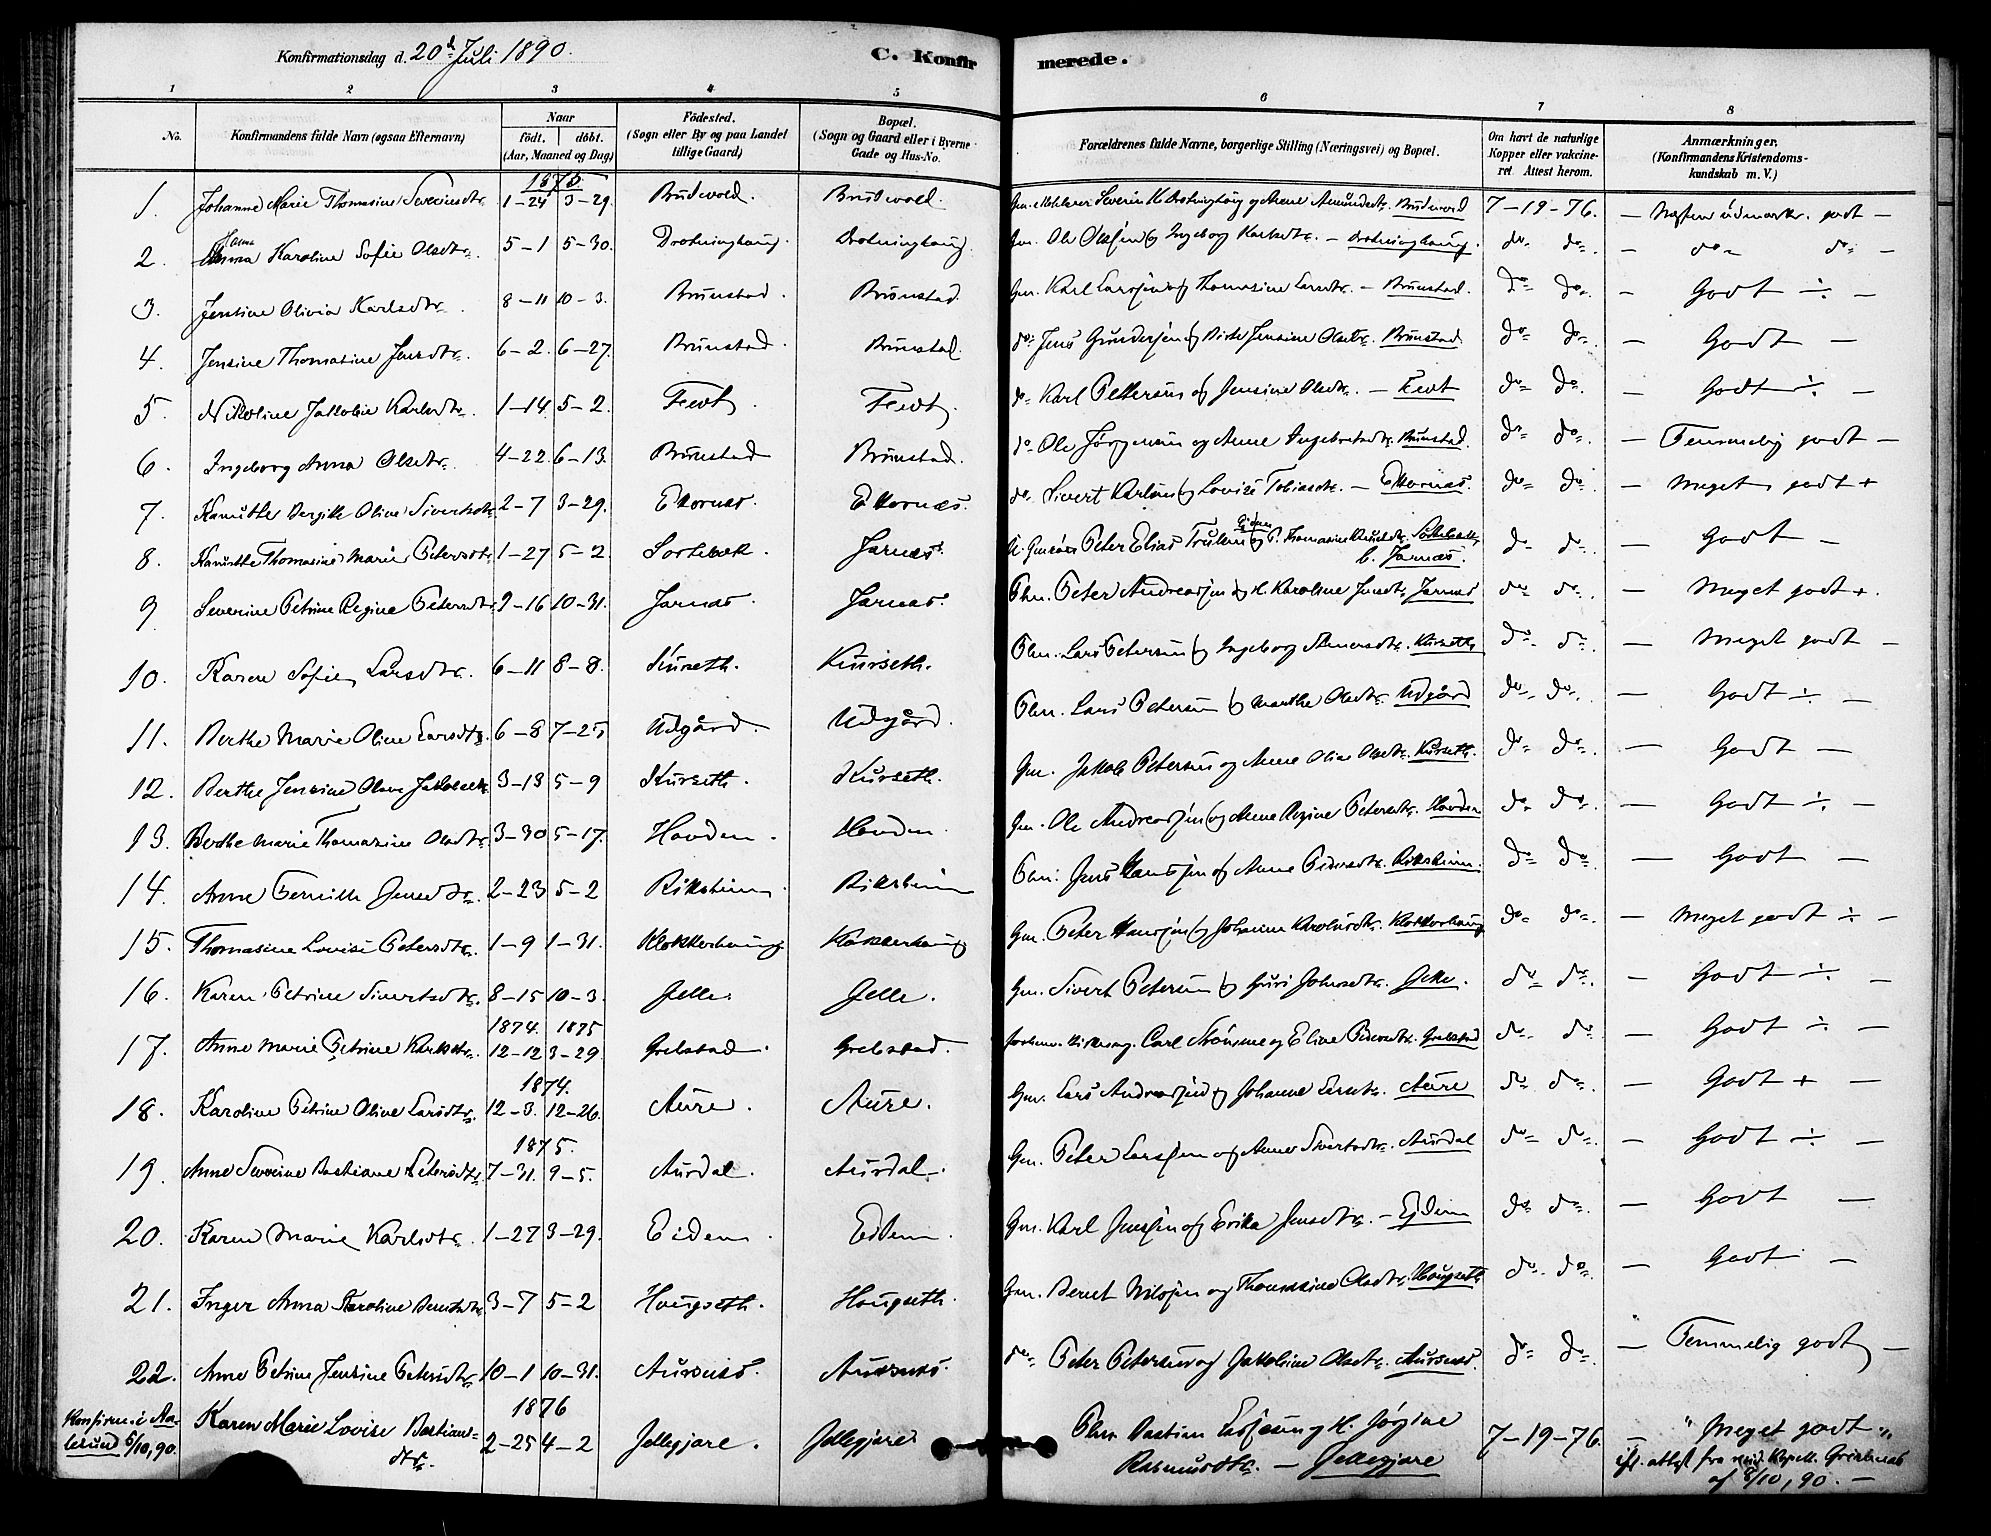 Konfirmationsdag d. 20d Juli 1890.
C. Konfirmerede.
1 2 3 4 5 6 7 8
No. Konfirmandens fulde Navn (ogsaa Efternavn) Naar født. døbt. (Aar, Maaned og Dag) Fødested. (Sogn eller By og paa Landet tillige Gaard) Bopæl. (Sogn og Gaard eller i Byerne Gade og Hus-No. Forældrenes fulde Navne, borgerlige Stilling (Næringsvei) og Bopæl. Om havt de naturlige Kopper eller vakcineret. Attest herom. Anmærkninger. (Konfirmandens Kristendomskundskab m. V.)
1875
1. Johanne Marie Thomasine Severinsdtr. 1-24 3-29. Brudevold. Brudevold. Severin K. Drotninghoug og Anne Amundsdtr. Brudevold 7-19-76. – Næsten udmærk. godt –
2. Karoline Sofie Olsdtr. 5-1 5-30. Drotninghaug. Drotninghaug. Gm. Ole Olssen og Ingeborg Karlsdtr. – Drotninghoug. do do. – do do –
3. Jensine Olivia Karlsdtr. 8-11 10-3. Brunstad. Brunstad. Gm. Karl Larssen og Thomasine Larsdtr. – Brunstad. do do. – Godt ÷ –
4. Jensine Thomasine Jensdtr. 6-2. 6-27. Brunstad. Brunstad. do Jens Gundersen og Jensine Olsdtr. Brunstad do do. – Godt –
5. Nikoline Jakobie Karlsdtr. 1-14 5-2. Fedt. Fedt. do Karl Pettersen og Jensine Olsdtr. – Fedt do do. – Godt ÷ –
6. Ingeborg Anna Olsdtr. 4-22. 6-13. Brunstad Brunstad. do Ole Jørgensen og Anne Ingebretsdtr. Brunstad. do do. – Temmelig godt –
7. Kanutte Bergitte Oline Sivertsdtr. 2-7 3-29. Ekornæs. Ekornæs. do Sivert Karlsen og Lovise Tobiasdtr. – Ekornæs. do do. – Meget godt +
8. Kanutte Thomasine Marie Petersdtr. 1-27 5-2. Sortebæk. Jarnæs. Peter Elias Thomasine Jarnæs. do do. – Godt –
9 Severine Petrine Regine Petersdtr. 9-16 10-31. Jarnæs. Jarnæs. Peter Andreassen og H. Karoline Jensdtr. Jarnæs do do. – Meget godt +.
10. Karen Sofie Larsdtr. 6-11 8-8. Kurseth. Kurseth. Lars Petersen og Ingeborg Kurseth do do. – Meget godt –
11. Berthe Marie Oline Larsdtr. 6-8 7-25 Udgård. Udgård. Lars Petersen og Marthe Olsdtr. Udgård do do. – Godt ÷ –
12. Berthe Jensine Olave Jakobsdtr. 3-13 5-9 Kurseth. Kurseth. Gm. Jakob Petersen og Anne Oline Olsdtr. Kurseth. do do. – Godt –
13. Berthe Marie Thomasine Olsdtr. 3-30 5-17. Hovden. Hovden. Gm. Ole Andreassen og Anne Regine Petersdtr. Hovden do do. – Godt ÷ –
14. Anne Pernille Jensdtr. 2-23 5-2 Riksheim. Riksheim Jens Hanssen og Anne Pedersdtr. Riksheim. do do. – Godt –
15. Thomasine Lovise Petersdtr. 1-9 1-31. Klokkerhaug. Klokkerhaug Gm. Peter Hanssen og Johanne Karolusdtr. Klokkerhaug do do. – Meget godt ÷ –
16. Karen Petrine Sivertsdtr. 8-15 10-3. Jelle. Jelle. Gm. Sivert Petersen og Guri Johnsdtr. Jelle. do do. – Godt ÷
1874. 1875
17. Anne Marie Petrine Karlsdtr. 12-12 3-29. Grebstad. Grebstad. Carl Strømme og Eline Pedersdtr. Grebstad do. do. – Godt ÷ –
1874.
18. Karoline Petrine Oline Larsdtr. 12-3. 12-26. Aure. Aure. Gm. Lars Andreassen og Johanne Larsdtr. Aure do do. – Godt + –
1875.
19. Anne Severine Bastiane Petersdtr. 7-31. 9-5. Aurdal. Aurdal. Gm. Peter Larssen og Anne Sivertsdtr. Aurdal do do. – Godt ÷ –
20. Karen Marie Karlsdtr. 1-27 3-29. Eidem. Eidem. Gm. Karl Jenssen og Erika Jensdtr. – Ejdem do do. – Godt –
21. Inger Anna Karoline Berntsdtr. 3-7 5-2 Hougseth. Hougseth. Gm. Bernt Nilssen og Thomasine Olsdtr. Hougseth do. do. – Godt –
22. Anne Petrine Jensine Petersdtr. 10-1 10-31. Aursnæs. Aursnæs. do. Peter Petersen og Jakobine Olsdtr. Aursnæs. do do. – Temmelig godt –
1876
Konfirm. i Aalesund 5/10, 90. Karen Marie Lovise Bastiansdtr. 2-25 4-2 Jellegjære. Jellegjære Bastian og H. Jørgine Rasmusdtr. – Jellegjære 7-19-76. – "Meget godt" ifl. attest fra res. Kapell. af 8/10, 90. –